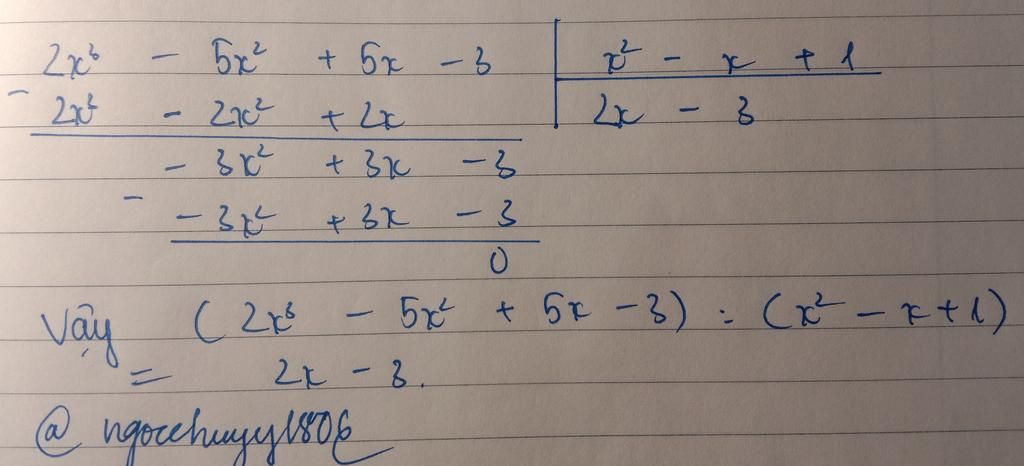 2x³ - 5x² + 5x - 3 | x² - x + 1
- 2x³ - 2x² + 2x | 2x - 3
- 3x² + 3x - 3
- - 3x² + 3x - 3
0
Vậy (2x³ - 5x² + 5x - 3) : (x² - x + 1)
= 2x - 3.
@ngocchuyy1806